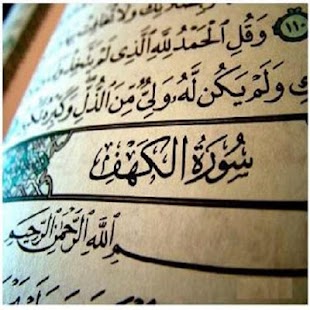 وَقُلِ الْحَمْدُ لِلَّهِ الَّذِي لَمْ يَتَّخِذْ
وَلَمْ يَكُن لَّهُ وَلِيٌّ مِّنَ الذُّلِّ وَكَبِّرْهُ
سُورَةُ الْكَهْفِ
اللَّهِ الرَّحْمَٰنِ الرَّحِيمِ